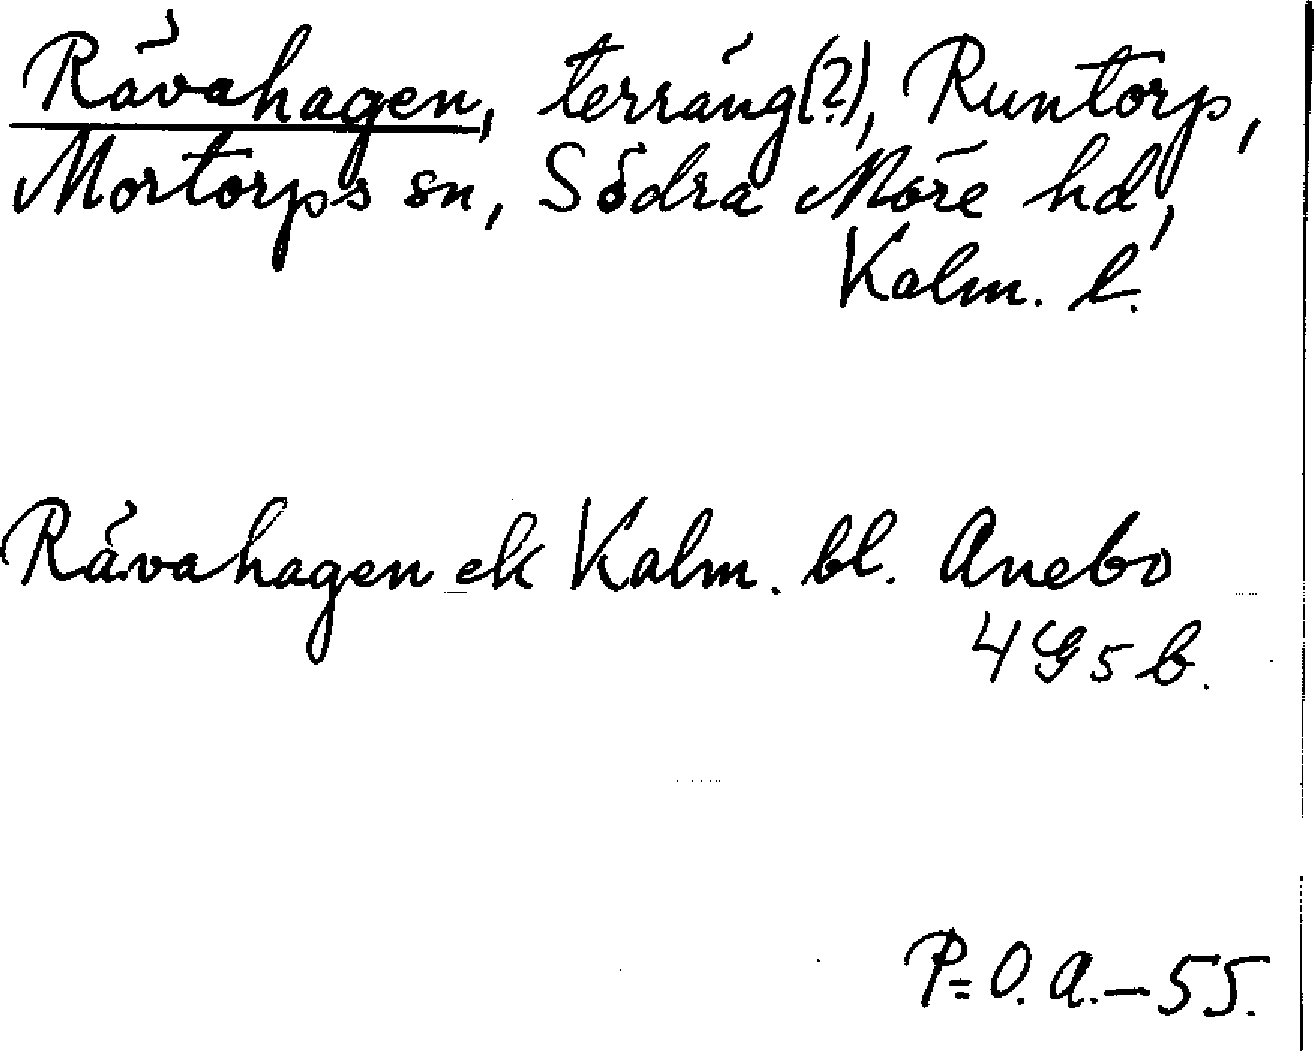 Rävahagen, terräng(?), Runtorp,
Mortorps sn, Södra Möre hd,
Kalm. l.
Rävahagen ek Kalm. bl. Anebo
4G5b.
P=O.A.-55.